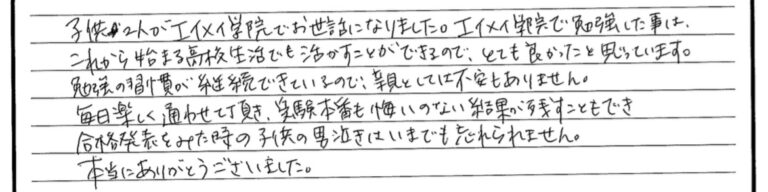 子供2人がエイメイ学院でお世話になりました。エイメイ学院で勉強した事は、
これから始まる高校生活でも活かすことができるので、とても良かったと思っています。
勉強の習慣が継続できているので、親としては不安もありません。
毎日楽しく通わせて頂き、受験本番も悔いのない結果が残すこともでき
合格発表をみた時の子供の男泣きはいまでも忘れられません。
本当にありがとうございました。